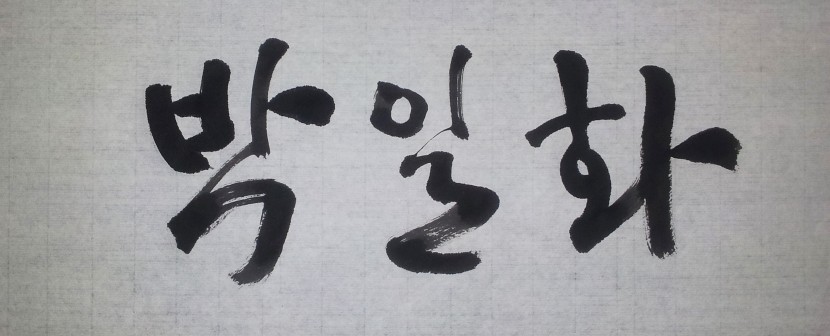 박일화